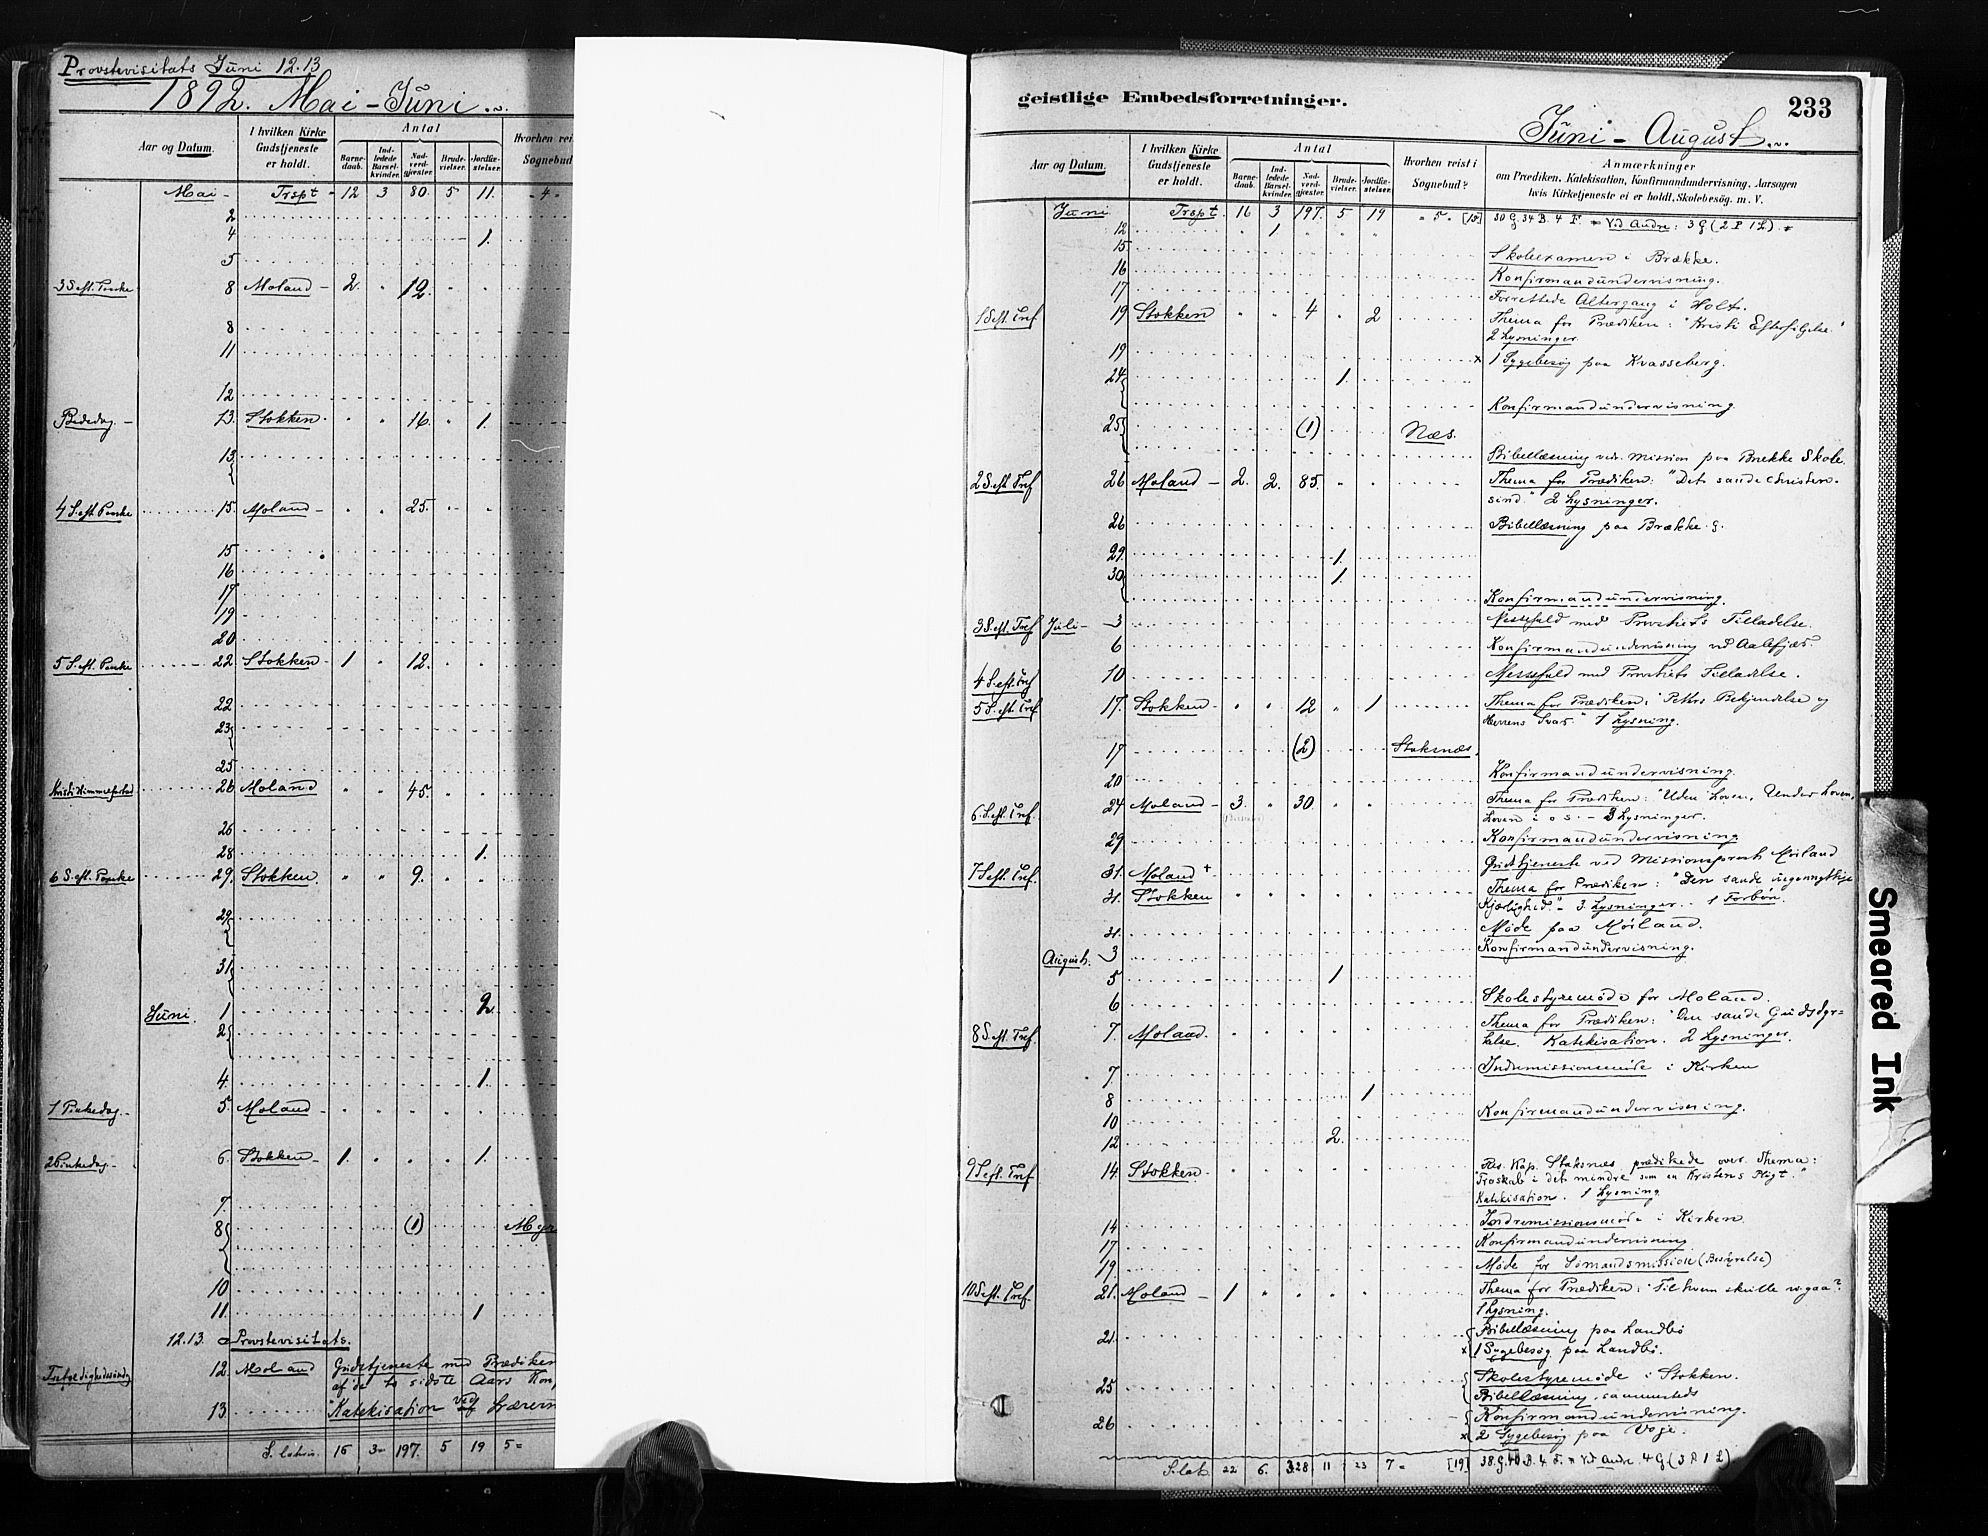 Provstevisitats Juni 12.13
1892. Mai - Juni
Aar og Datum.
I hvilken Kirke Gudstjeneste er holdt.
Antal
Barne-daab.
Ind-ledede Barsel-kvinder.
Nad-verd-gjester.
Brude-vielser.
Jordfæ-stelser.
Hvorhen rei
Sognebud
Mai - Trspt - 12 3 80. 5 11. " 4 "
2
4 1.
5
3 S. eft. Paaske 8 Moland - 2. " 12.
8
11
12
Bededag - 13. Stokken " " 16. " 1.
13.
4 S. eft. Paaske 15. Moland - " " 25. " "
15
16
17
19
20
5 S. eft. Paaske 22. Stokken - 1 " 12. " "
22
23
25
Kristi Himmelfartsd 26 Moland " " 45. " "
26
28 1.
6 S. eft. Paaske 29. Stokken. " " 9. " "
29
31
Juni. 1 2
2
4. 1.
1 Pinkedag - 5. Moland - " " " " "
2 Pinkedag - 6. Stokken - 1. " " " 1.
7
8 (1) Myr
10
11. 1
12.13. Provstevisitats.
Trefoldighedssøndag 12. Moland Gudstjeneste med Prædiken
af de to sidste Aars Kon
13. Katekisation ved Lærern
S. latus. 15 3 197. 5 19 5 =
geistlige Embedsforretninger.
233
Juni - August
Aar og Datum.
I hvilken Kirke Gudstjeneste er holdt.
Antal
Barne-daab.
Ind-ledede Barsel-kvinder.
Nad-verd-gjester.
Brude-vielser.
Jordfæ-stelser.
Hvorhen reist i Sognebud?
Anmærkninger
om Prædiken, Katekisation, Konfirmandundervisning, Aarsagen
hvis Kirketjeneste ei er holdt, Skolebesøg. m. V.
Juni Trspt. 16 3 197. 5 19 " 5 " [15] 30 G. 34 B. 4 F. = Ved Andre: 3 G (2 P 1 L).
12 " 1 " " "
15. Skoleexamen i Brække.
16 Konfirmandundervisning.
17 Forrettede Altergang i Holt.
1 S. eft. Tref 19 Stokken " " 4 " 2 Thema for Prædiken: "Kristi Efterfølgelse"
2 Lysninger.
19 x 1 Sygebesøg paa Kvasseberg.
24 1.
Konfirmandundervisning.
25 (1) Næs.
Bibellæsning ved. Mission paa Brække Skole.
2 S. eft Tref 26 Moland - 2. 2. 85. " " Thema for Prædiken: "Det sande Christen-
sind." 2 Lysninger.
26 Bibellæsning paa Brække g.
29. 1.
30 1.
Konfirmandundervisning.
3 S. eft. Tref Juli - 3 Messefald med Provstiets Tilladelse.
6 Konfirmandundervisning ved Aalefjær.
4 S. eft. Tref 10 Messefald med Provstiets Tilladelse.
5 S. eft. Tref 17. Stokken - " " 12 " 1 Thema for Prædiken: "Peters Bekjendelse og
Herrens Svar" 1 Lysning.
17 (2) Staksnæs.
20 Konfirmandundervisning.
6. S. eft. Tref. 24 Moland - 3. " 30. " " Thema for Prædiken: "Uden Loven, Under Loven,
Loven i os. - 3 Lysninger.
29 Konfirmandundervisning
7 S. eft. Tref. 31. Moland + Gudstjeneste ved Missionsprest Møiland
31. Stokken " " " " " Thema for Prædiken: "Den sande uegennyttige
Kjærlighed." - 3. Lysninger. 1 Forbøn.
31. Møde paa Møiland.
August. 3 Konfirmandundervisning.
5 1
6 Skolestyremøde for Moland.
8 S. eft. Tref. 7. Moland. Thema for Prædiken: "Den sande Gudsdyr=
kelse. Katekisation. 2 Lysninger.
7. Indremissionsmøde i Kirken
8 1
10 Konfirmandundervisning.
12 2.
9 S. eft. Tref 14. Stokken. Res. Kap. Staksnæs prædikede over Thema:
"Troskab i det mindre som en Kristens Pligt."
Katekisation. 1 Lysning
14 Indremissionsmøde i Kirken.
17 Konfirmandundervisning
19 Møde for Sømandsmission (Bestyrelse)
10 S. eft. Tref. 21. Moland - 1 " " " " Thema for Prædiken: Til hvem skulle vi gaa?
1 Lysning.
21. Bibellæsning paa Landbø
x 1 Sygebesøg paa Landbø.
25 Skolestyremøde i Stokken.
Bibellæsning sammesteds
26 Konfirmandundervisning.
x 2 Sygebesøg paa Voje.
S. lat. 22 6. 328 11 23 7 = [19] 38. G. 40 B. 4. F. = Ved Andre. 4 G (3 P. 1 L)
Smeared Ink